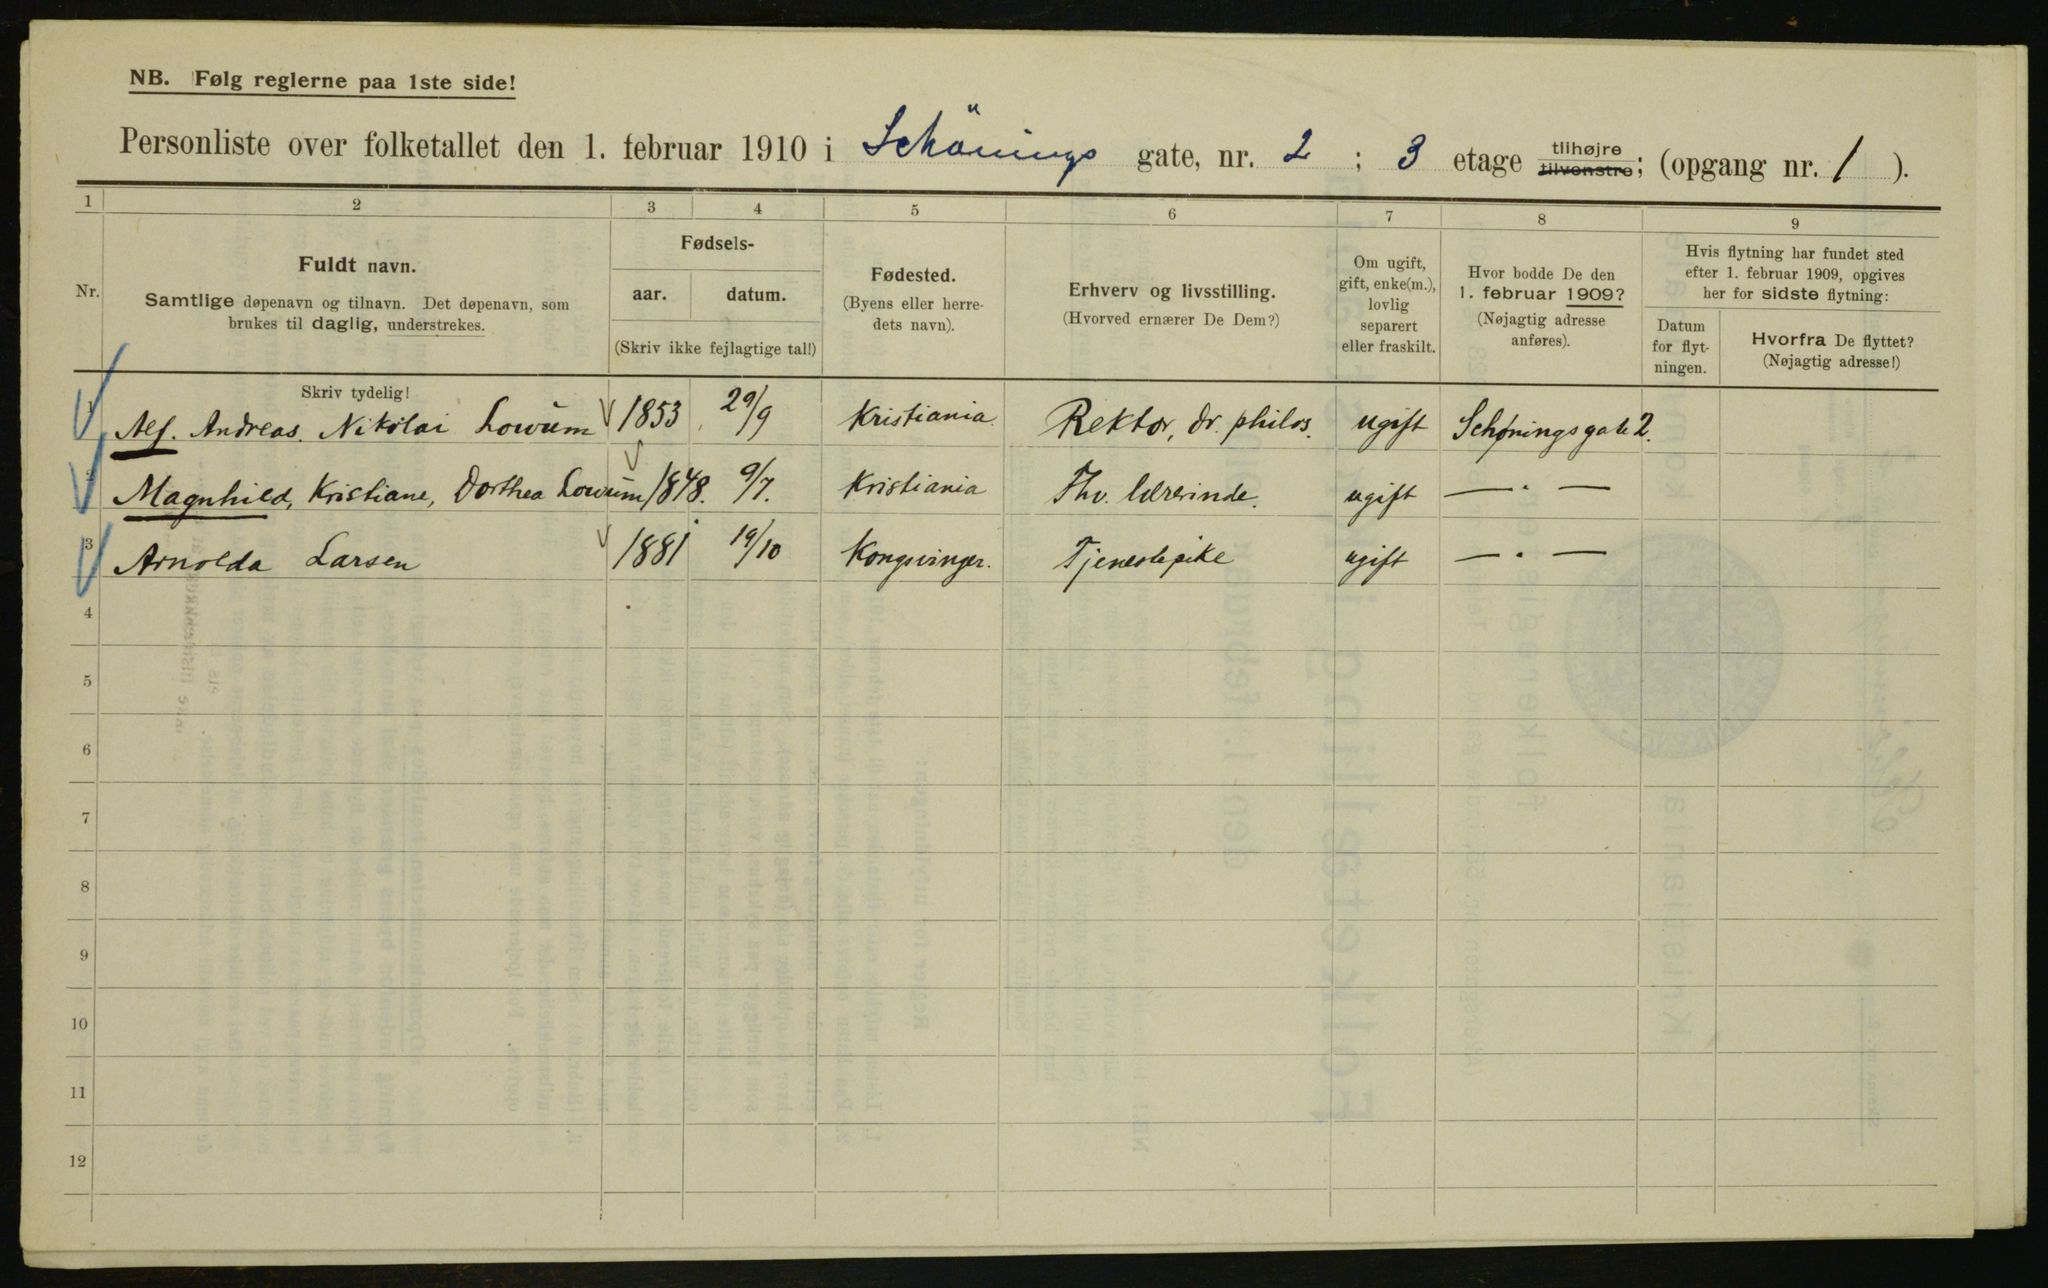 NB. Følg reglerne paa 1ste side!
Personliste over folketallet den 1. februar 1910 i Schönings gate, nr. 2 ; 3 etage tilhøjre tilvenstre; (opgang nr. 1 ).
1 2 3 4 5 6 7 8 9
Nr.
Fuldt navn.
Samtlige døpenavn og tilnavn. Det døpenavn, som
brukes til daglig, understrekes.
Fødsels-
aar. datum.
(Skriv ikke fejlagtige tal!)
Fødested.
(Byens eller herre-
dets navn).
Erhverv og livsstilling.
(Hvorved ernærer De Dem?)
Om ugift,
gift, enke(m.),
lovlig
separert
eller fraskilt.
Hvor bodde De den
1. februar 1909?
(Nøjagtig adresse
anføres).
Hvis flytning har fundet sted
efter 1. februar 1909, opgives
her for sidste flytning:
Datum
for flyt-
ningen.
Hvorfra De flyttet?
(Nøjagtig adresse!)
Skriv tydelig!
1 Alf. Andreas. Nikolai Lowum 1853 29/9 Kristiania. Rektor, dr. philos. ugift Schøningsgate 2.
2 Magnhild, Kristiane, Dorthea Lowum 1848. 9/7. Kristiania Fhv. lærerinde. ugift — . —
3 Arnolda Larsen 1881 19/10 Kongsvinger. Tjenestepike ugift — . —
4
5
6
7
8
9
10
11
12